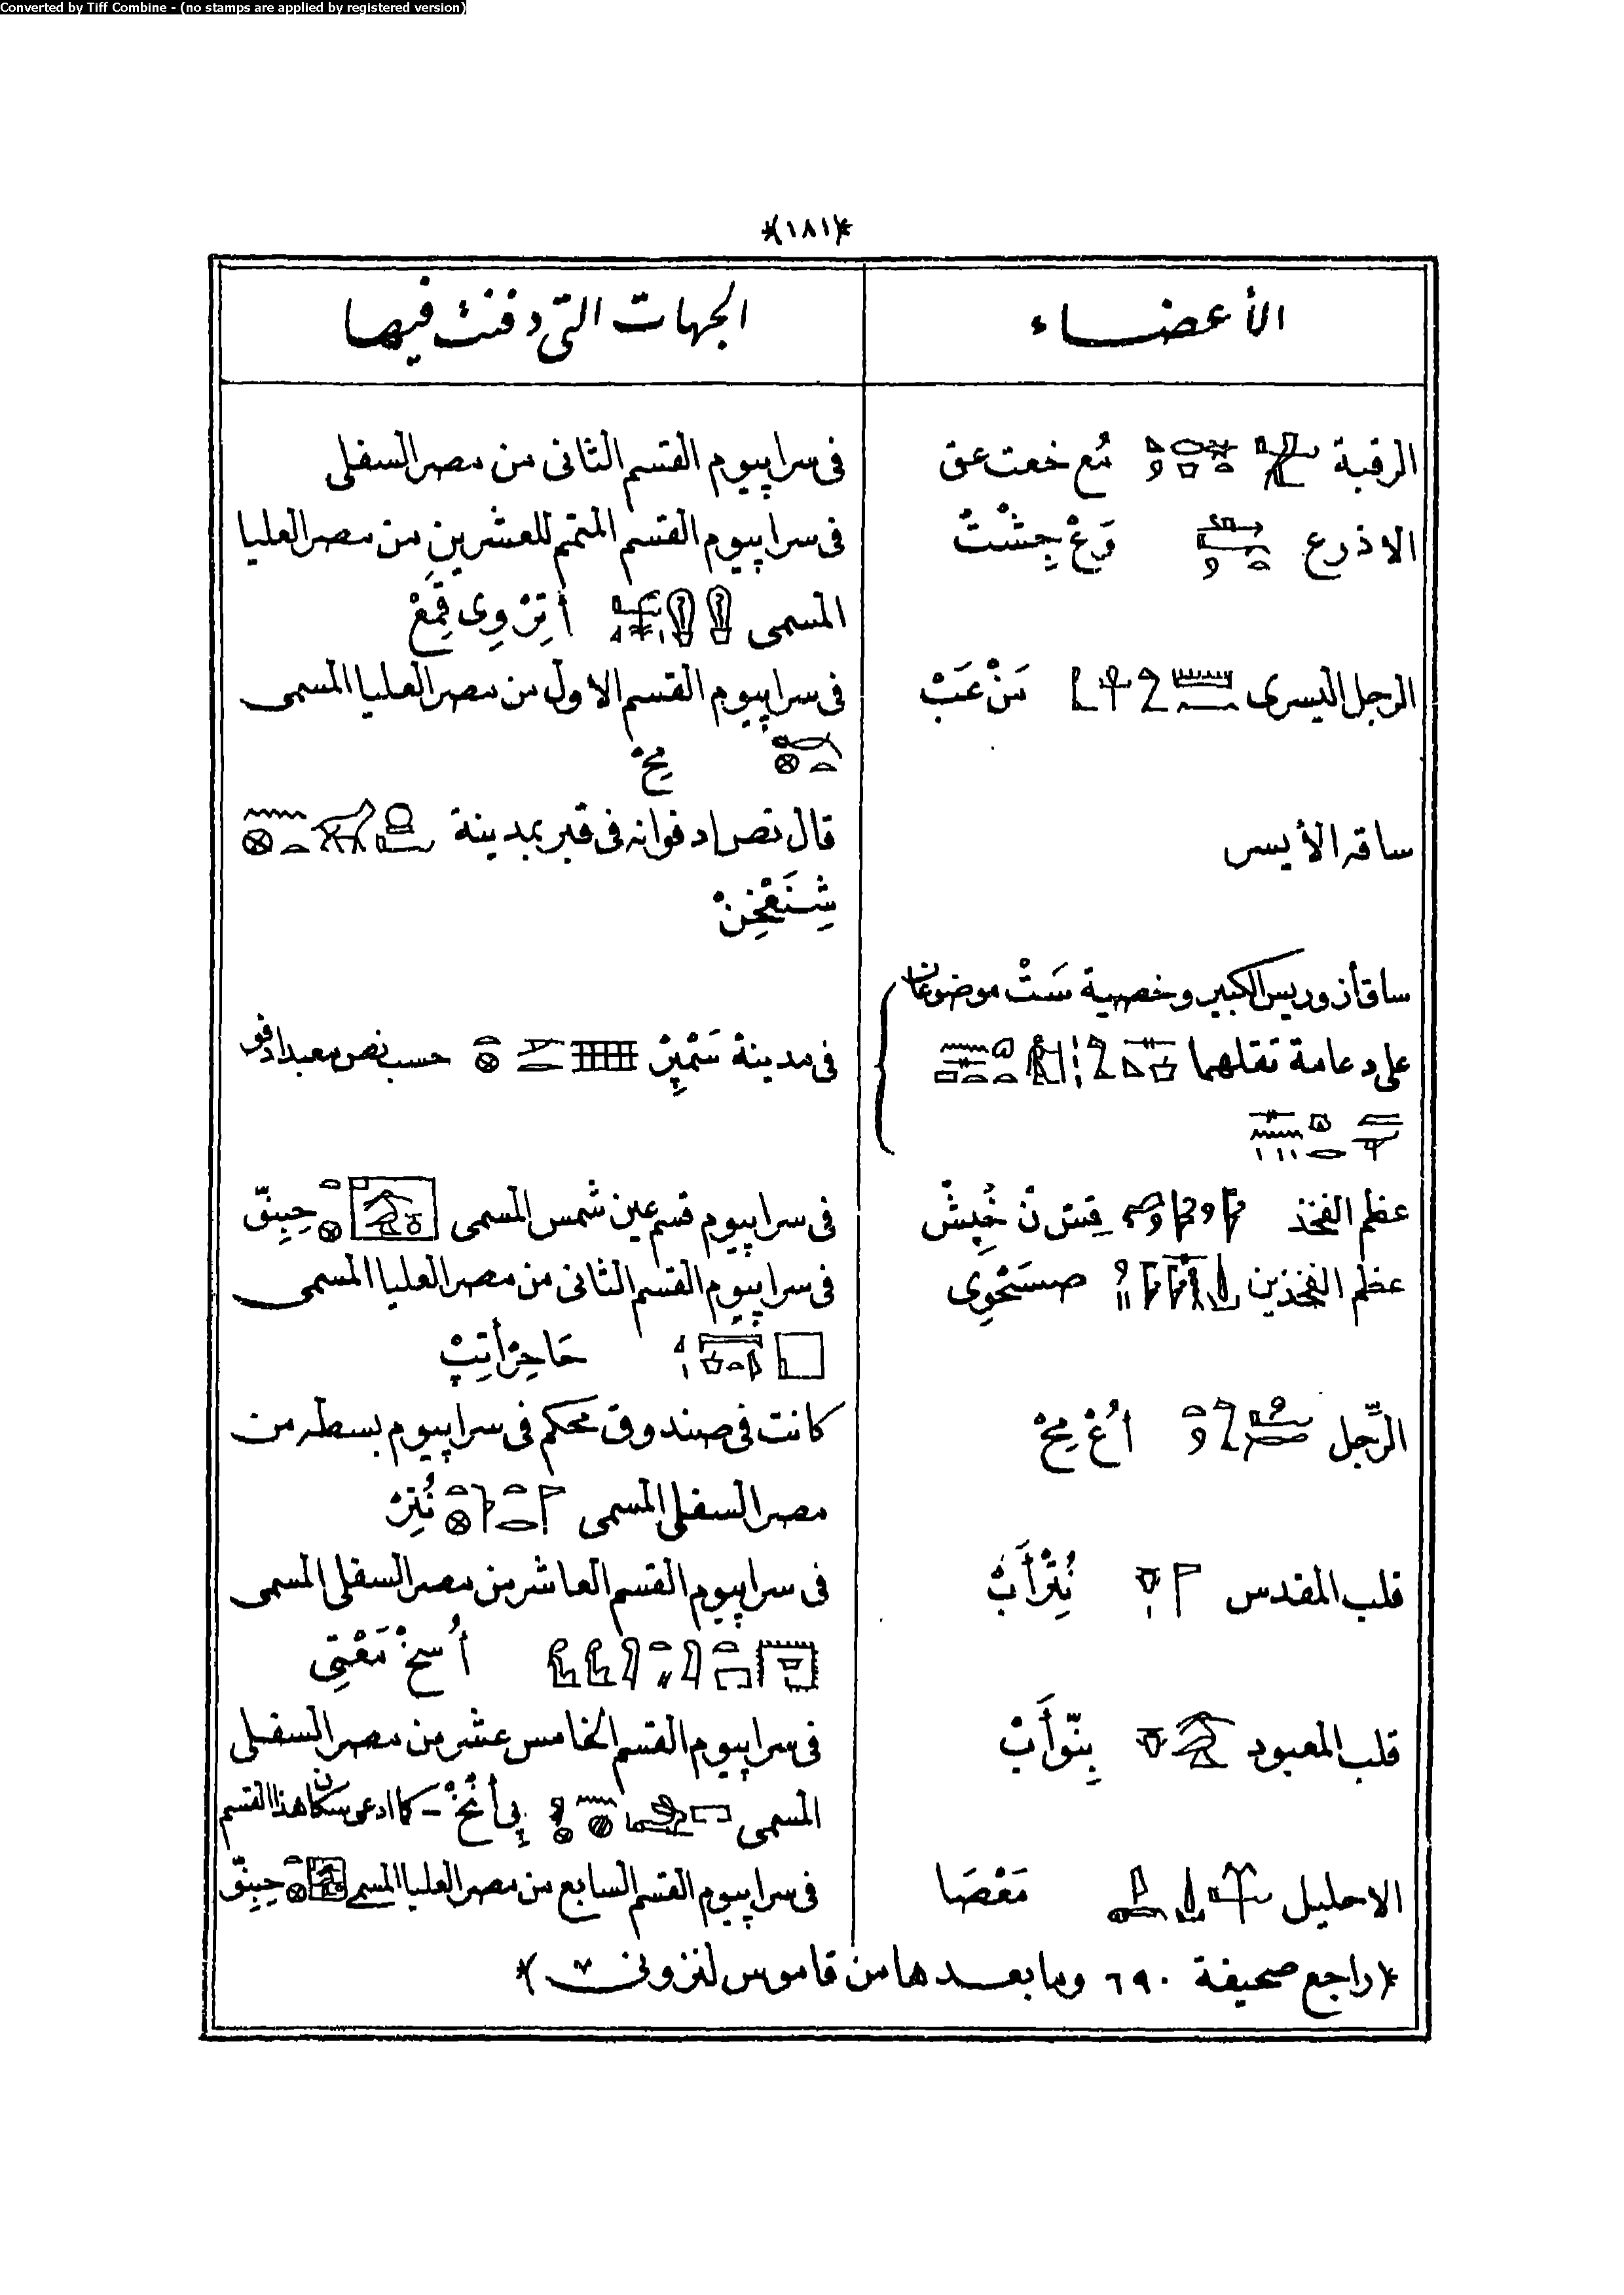 Converted by Tiff Combine - (no stamps are applied by registered version)
*(١٨١)*
الأعضاء الجهات التى دفنت فيها
الرقبة مُع خعت عق فى سراپيوم القسم الثانى من مصر السفلى
الاذرع وَعْ جِشْتْ فى سراپيوم القسم المتمم للعشرين من مصر العليا
المسمى أتِرْ وِى قِمَعْ
الرجل اليسرى مَنْ عَبْ فى سراپيوم القسم الاول من مصر العليا المسمى
مِخْ
ساقه الأيسر قال نص ادفو انه فى قبر بمدينة
شِنَعْخِنْ
ساق أزوريس الكبير وخصية سَتْ موضوعان
على دعامة تقلهما فى مدينة سَمْپِرْ حسب نص معبد ادفو
عظم الفخذ قِسْ نْ خُپِشْ فى سراپيوم قسم عين شمس المسمى حِبِنّ
عظم الفخذين صسَحْوِى فى سراپيوم القسم الثانى من مصر العليا المسمى
حَاحِرْأتِپْ
الرِّجل أُعْ مِحْ كانت فى صندوق محكم فى سراپيوم بسطه من
مصر السفلى المسمى نُتِرْ
قلب المقدس نُتِرْأَبْ فى سراپيوم القسم العاشر من مصر السفلى المسمى
أُسِخْ مَعْتِى
قلب المعبود بِنّوأَبْ فى سراپيوم القسم الخامس عشر من مصر السفلى
المسمى پِى أُنُخْ - كا ادعى سكان هذا القسم
الاحليل مَعْصَا فى سراپيوم القسم السابع من مصر العليا المسمى حِبِنّ
*(راجع صحيفة ٦٩٠ وما بعدها من قاموس لنزونى ٧)*